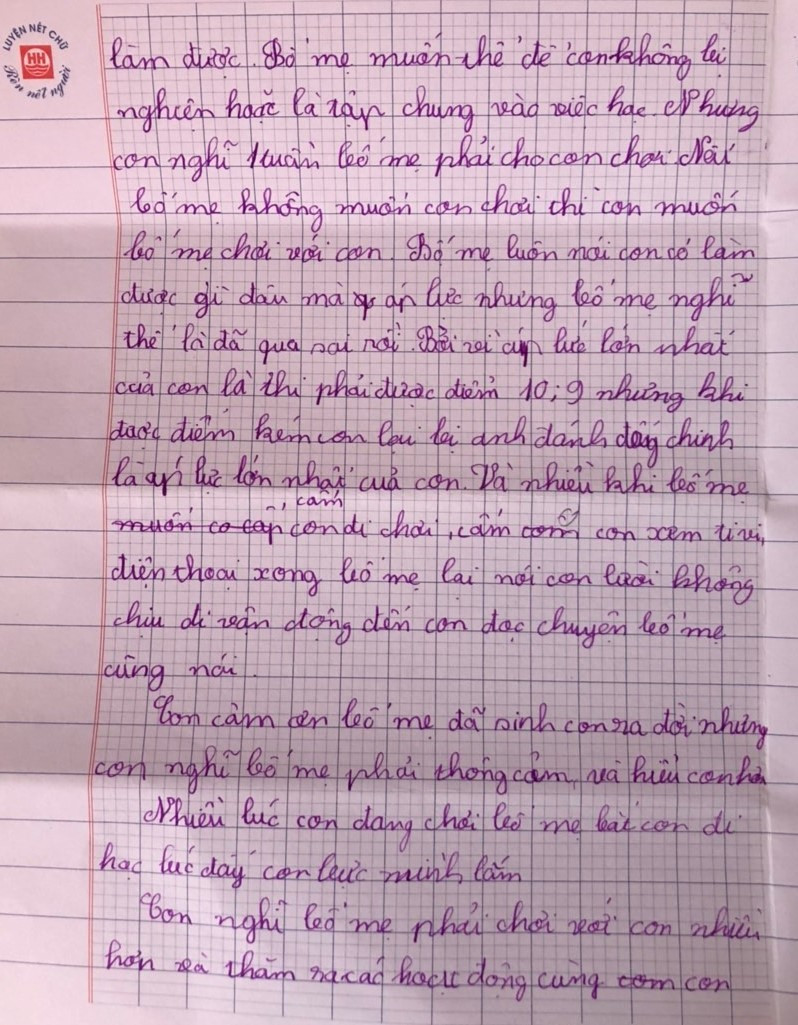 LUYỆN NÉT CHỮ
HH
Rèn nết người
làm được. Bố mẹ muốn thế để con không bị
nghiện hoặc là tập chung vào việc học. Nhưng
con nghĩ tuần bố mẹ phải cho con chơi. Nếu
bố mẹ không muốn con chơi thì con muốn
bố mẹ chơi với con. Bố mẹ luôn nói con có làm
được gì đâu mà áp lực nhưng bố mẹ nghĩ
thế là đã quá sai rồi. Bởi vì áp lực lớn nhất
của con là thi phải được điểm 10; 9 nhưng khi
được điểm kém con lại bị anh đánh đấy chính
là áp lực lớn nhất của con. Và nhiều khi bố mẹ
cấm
muốn co cấp con đi chơi, cấm con xem ti vi,
điện thoại xong bố mẹ lại nói con lười không
chịu đi vận động đến con đọc chuyện bố mẹ
cũng nói.
Con cảm ơn bố mẹ đã sinh con ra đời nhưng
con nghĩ bố mẹ phải thông cảm, và hiểu con hơn
Nhiều lúc con đang chơi bố mẹ bắt con đi
học lúc đấy con bực mình lắm
Con nghĩ bố mẹ phải chơi với con nhiều
hơn và thăm ra các hoạt động cùng com con